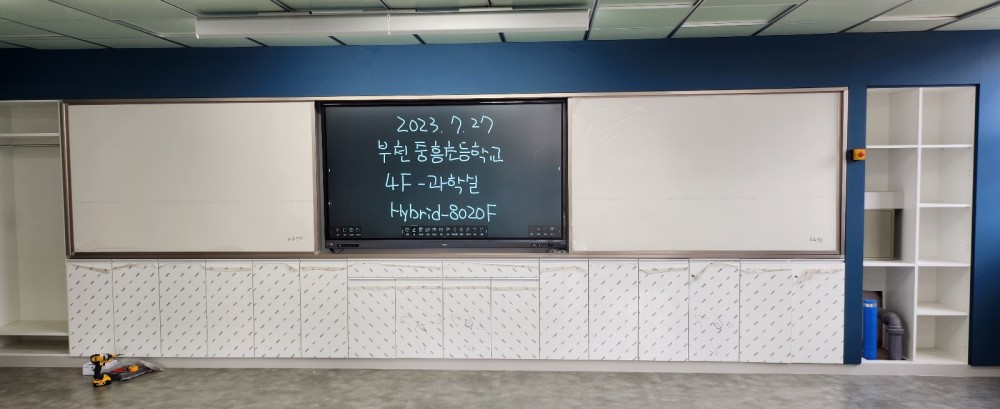 2023.7.27
부천 중흥초등학교
4F-과학실
Hybrid-8020F